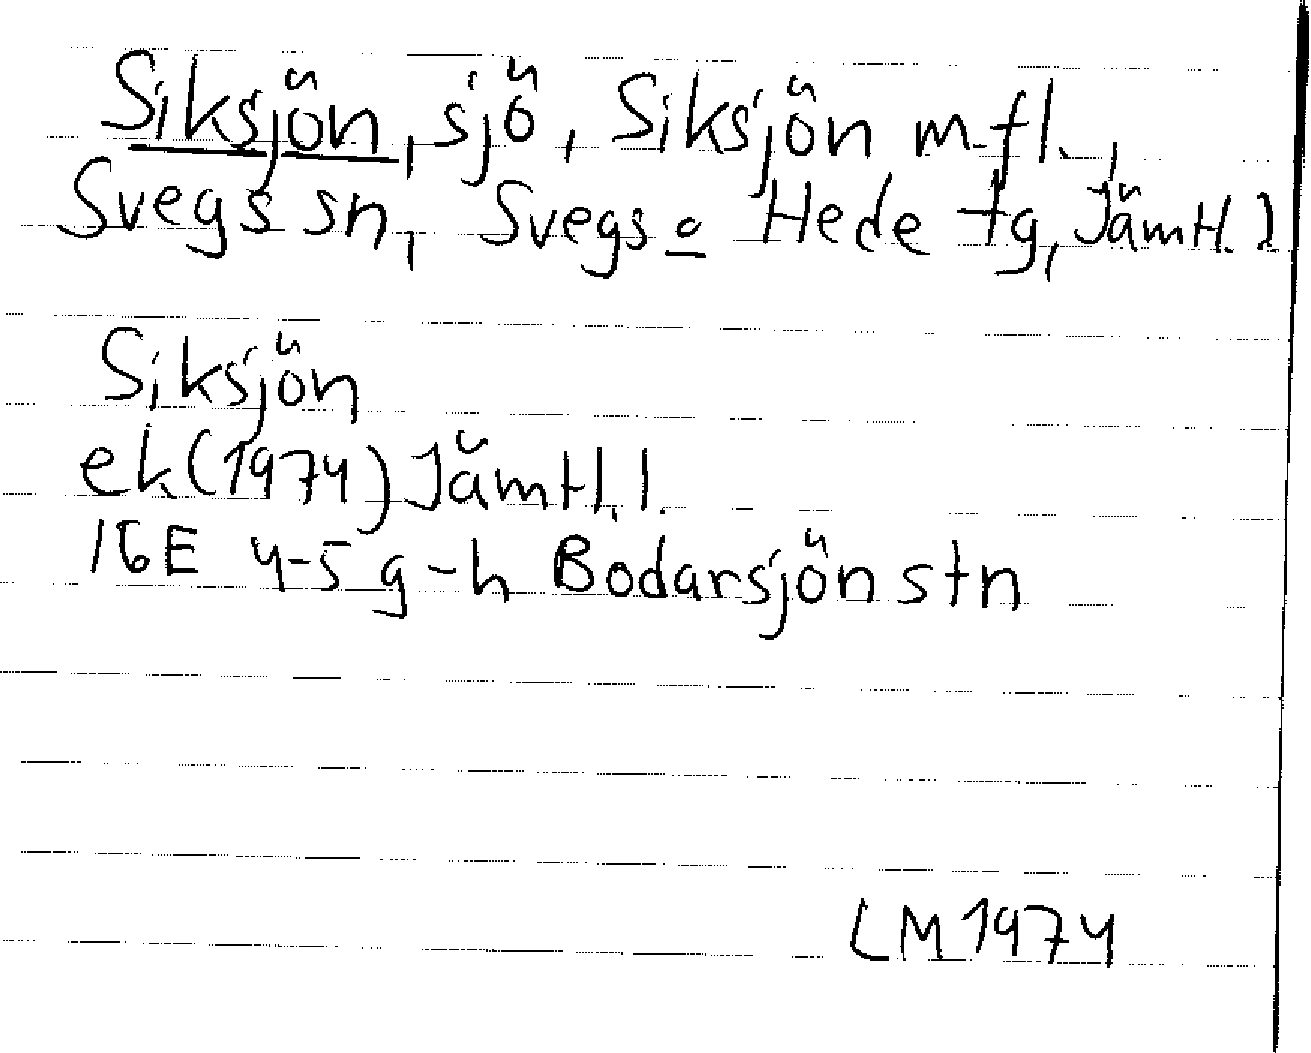 Siksjön, sjö, Siksjön m fl.,
Svegs sn, Svegs o Hede tg, Jämtl. l
Siksjön
ek (1974) Jämtl. l.
16E 4-5 g-h Bodarsjön stn
LM 1974